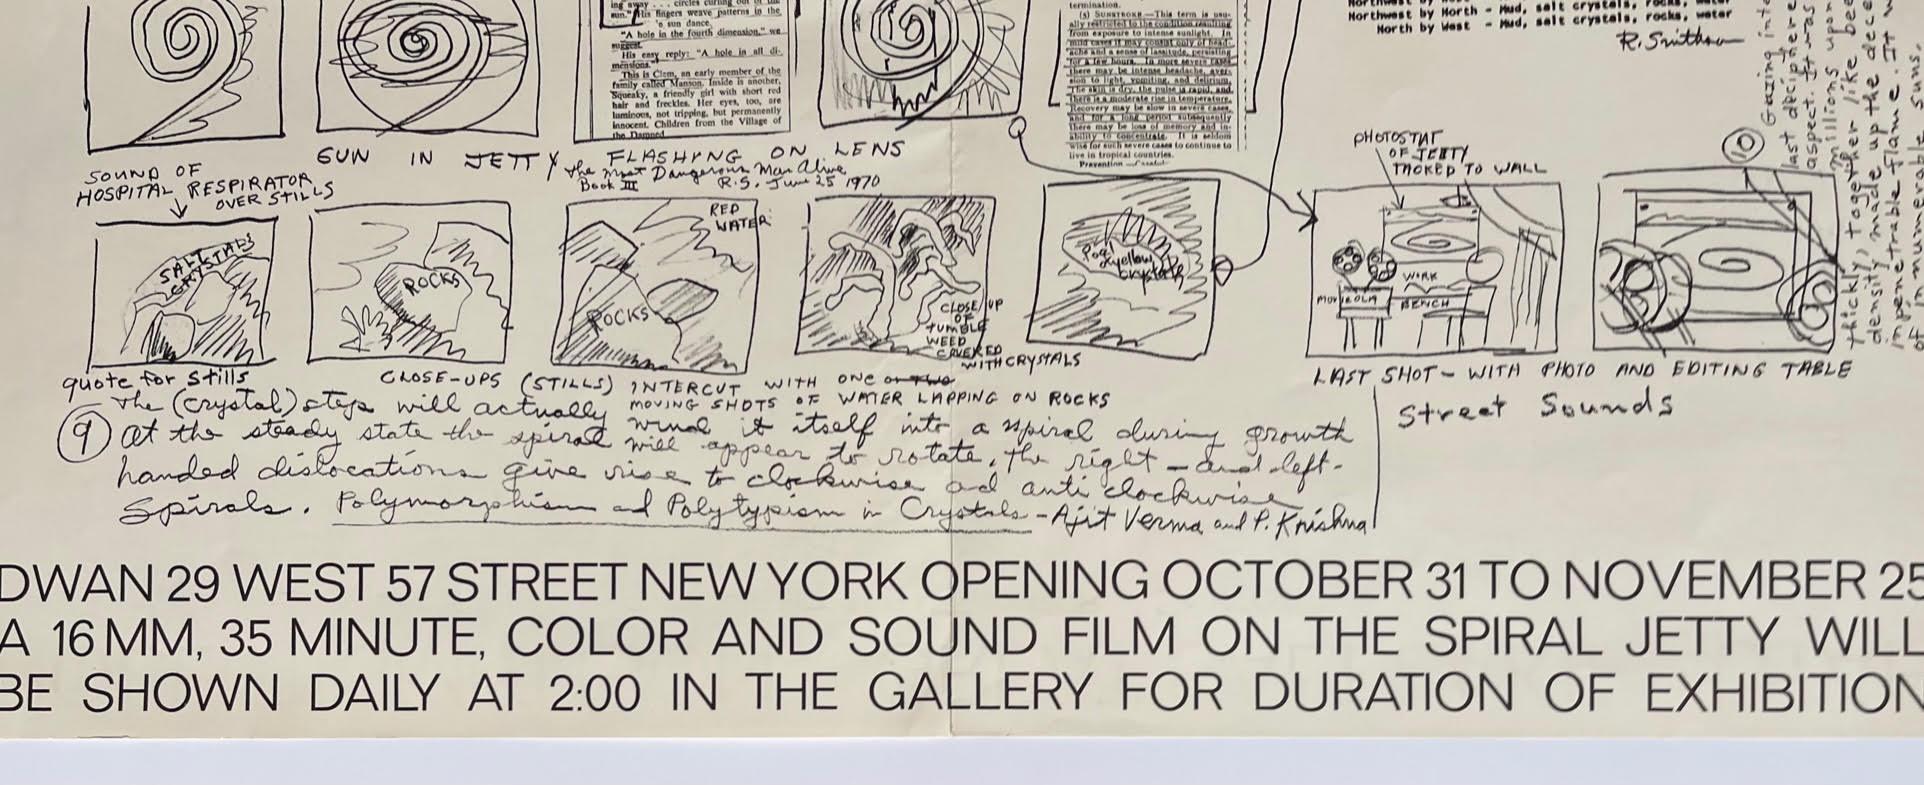 ing away . . . circles curling out of the
sun." His fingers weave patterns in the
's sun dance.
"A hole in the fourth dimension," we
suggest.
His easy reply: "A hole in all di-
mensions."
This is Clem, an early member of the
family called Manson. Inside is another,
Squeaky, a friendly girl with short red
hair and freckles. Her eyes, too, are
luminous, not tripping, but permanently
innocent. Children from the Village of
the Damned
termination.
(5) SUNSTROKE—This term is usu-
ally restricted to the condition resulting
from exposure to intense sunlight. In
mild cases it may consist only of head-
ache and a sense of lassitude, persisting
for a few hours. In more severe cases
there may be intense headache, aver-
sion to light, vomiting, and delirium.
The skin is dry, the pulse is rapid, and
there is a moderate rise in temperature.
Recovery may be slow in severe cases
and for a long period subsequently
there may be loss of memory and in-
ability to concentrate. It is seldom
wise for such severe cases to continue to
live in tropical countries.
Prevention
Northwest by North - Mud, salt crystals, rocks, water
North by West - Mud, salt crystals, rocks, water
R. Smithson
SOUND OF
HOSPITAL RESPIRATOR
OVER STILLS
SUN IN JETTY FLASHING ON LENS
The Most Dangerous Man Alive
Book III R.S. June 25 1970
PHOTOSTAT
OF JETTY
TACKED TO WALL
10
Gazing into
last deciphere
aspect. It was
millions upon
thickly together like bee
density made up the dece
impenetrable flame. It w
of innumerable suns.
SALT CRYSTALS
ROCKS
RED
WATER
ROCKS
CLOSE UP
OF
TUMBLE
WEED
COVERED
WITH CRYSTALS
yellow
crystals
MOVIEOLA
WORK
BENCH
quote for stills
CLOSE-UPS (STILLS) INTERCUT WITH ONE or two
MOVING SHOTS OF WATER LAPPING ON ROCKS
LAST SHOT - WITH PHOTO AND EDITING TABLE
Street Sounds
9
The (crystal) steps will actually wind it itself into a spiral during growth
at the steady state the spiral will appear to rotate, the right - and left-
handed dislocations give rise to clockwise and anti clockwise
Spirals. Polymorphism and Polytypism in Crystals - Ajit Verma and P. Krishna
DWAN 29 WEST 57 STREET NEW YORK OPENING OCTOBER 31 TO NOVEMBER 25
A 16 MM, 35 MINUTE, COLOR AND SOUND FILM ON THE SPIRAL JETTY WILL
BE SHOWN DAILY AT 2:00 IN THE GALLERY FOR DURATION OF EXHIBITION